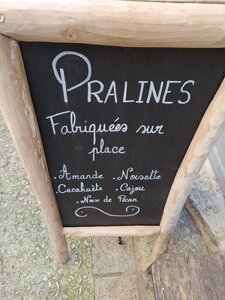 PRALINES
Fabriquées sur
place
.Amande .Noisette
.Cacahuète .Cajou
.Noix de Pécan